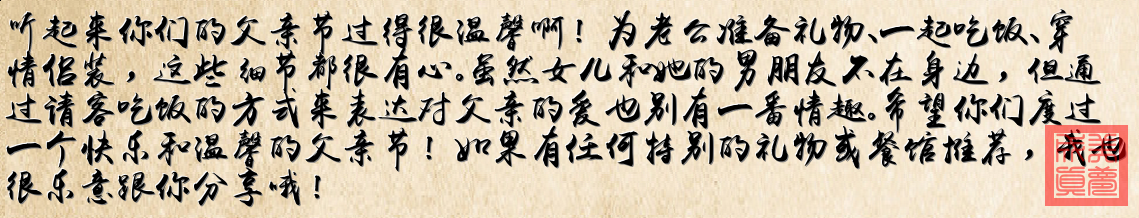 听起来你们的父亲节过得很温馨啊！为老公准备礼物、一起吃饭、穿
情侣装，这些细节都很有心。虽然女儿和她的男朋友不在身边，但通
过请客吃饭的方式来表达对父亲的爱也别有一番情趣。希望你们度过
一个快乐和温馨的父亲节！如果有任何特别的礼物或餐馆推荐，我也
很乐意跟你分享哦！